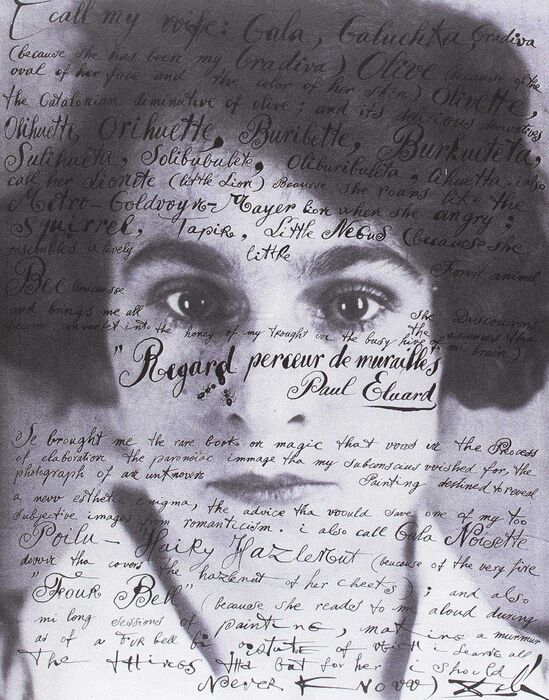 I call my wife: Gala, Galuchka Gradiva
(because she has been my Gradiva) Olive (because of the
oval of her face and the color of her skin) Olivette,
the Catalonian diminutive of olive; and its delicious derivatives
Olihuette, Orihuette, Buribette, Burkueteta,
Sulihueta, Solibubulete, Oliburibuleta, Cihuetta i also
call her Lionete (little Lion) Because she roars like the
Metro-Goldwyn-Mayer lion when she angry;
Squirrel, Tapir, Little Negus (because she
resembles a lively little Forest animal
Bee because She Discouvers
and brings me all the essences tha
become convertet into the honey of my thought in the busy hive of mi brain)
"Regard perceur de murailles
Paul Eluard
Se brought me the rare book on magic that voos in the Process
of elaboration the paranoiac immage tha my subconscius voished for the
photograph of an unknown Painting destined to reveal
a nevv esthetic enigma, the advice tha vvould save one of my too
subjective images from romanticism. i also call Gala Noisette
Poilu - Haiky Hazlenut (because of the very fine
dovvn tha covers the hazlenut of her cheets); and also
"Four Bell" (because she reades to me aloud during
mi long sessions of painting, making a murmur
as of a Fur bell bi of I learns all
The things tha but for her i should
Never Know)